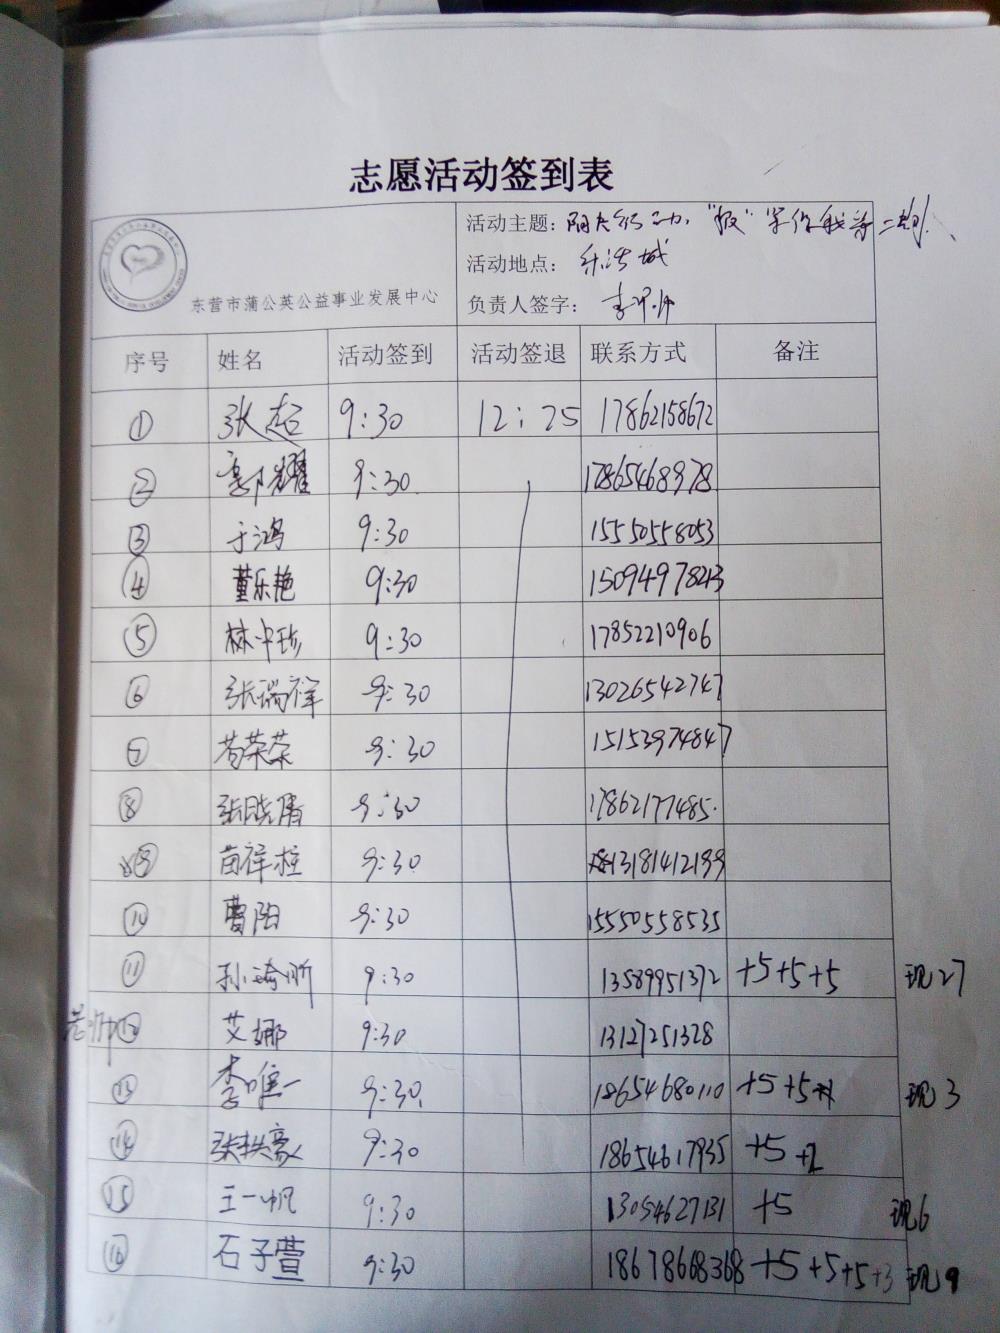 志愿活动签到表
东营市蒲公英公益事业发展中心
活动主题:
活动地点:
负责人签字:
序号 姓名 活动签到 活动签退 联系方式 备注
① 张超 9:30 12:25 17862158672
② 郭耀 9:30 17865468978
③ 于鸿 9:30 15550558053
④ 董乐艳 9:30 15094978243
⑤ 林中珍 9:30 17852210906
⑥ 张瑞祥 9:30 13026542747
⑦ 苟荣荣 9:30 15153974847
⑧ 张晓 9:30 17862177485
⑨ 苗祥柱 9:30 13181412199
⑩ 曹阳 9:30 15550558535
⑪ 孙 9:30 13589951372 +5+5+5 现27
老师 ⑫ 艾娜 9:30 13127251328
⑬ 李唯一 9:30 18654680110 +5+5+1 现3
⑭ 张轶豪 9:30 18654617935 +5 +2
⑮ 王一帆 9:30 13054627131 +5 现6
⑯ 石子萱 9:30 18678668368 +5+5+5+3 现9